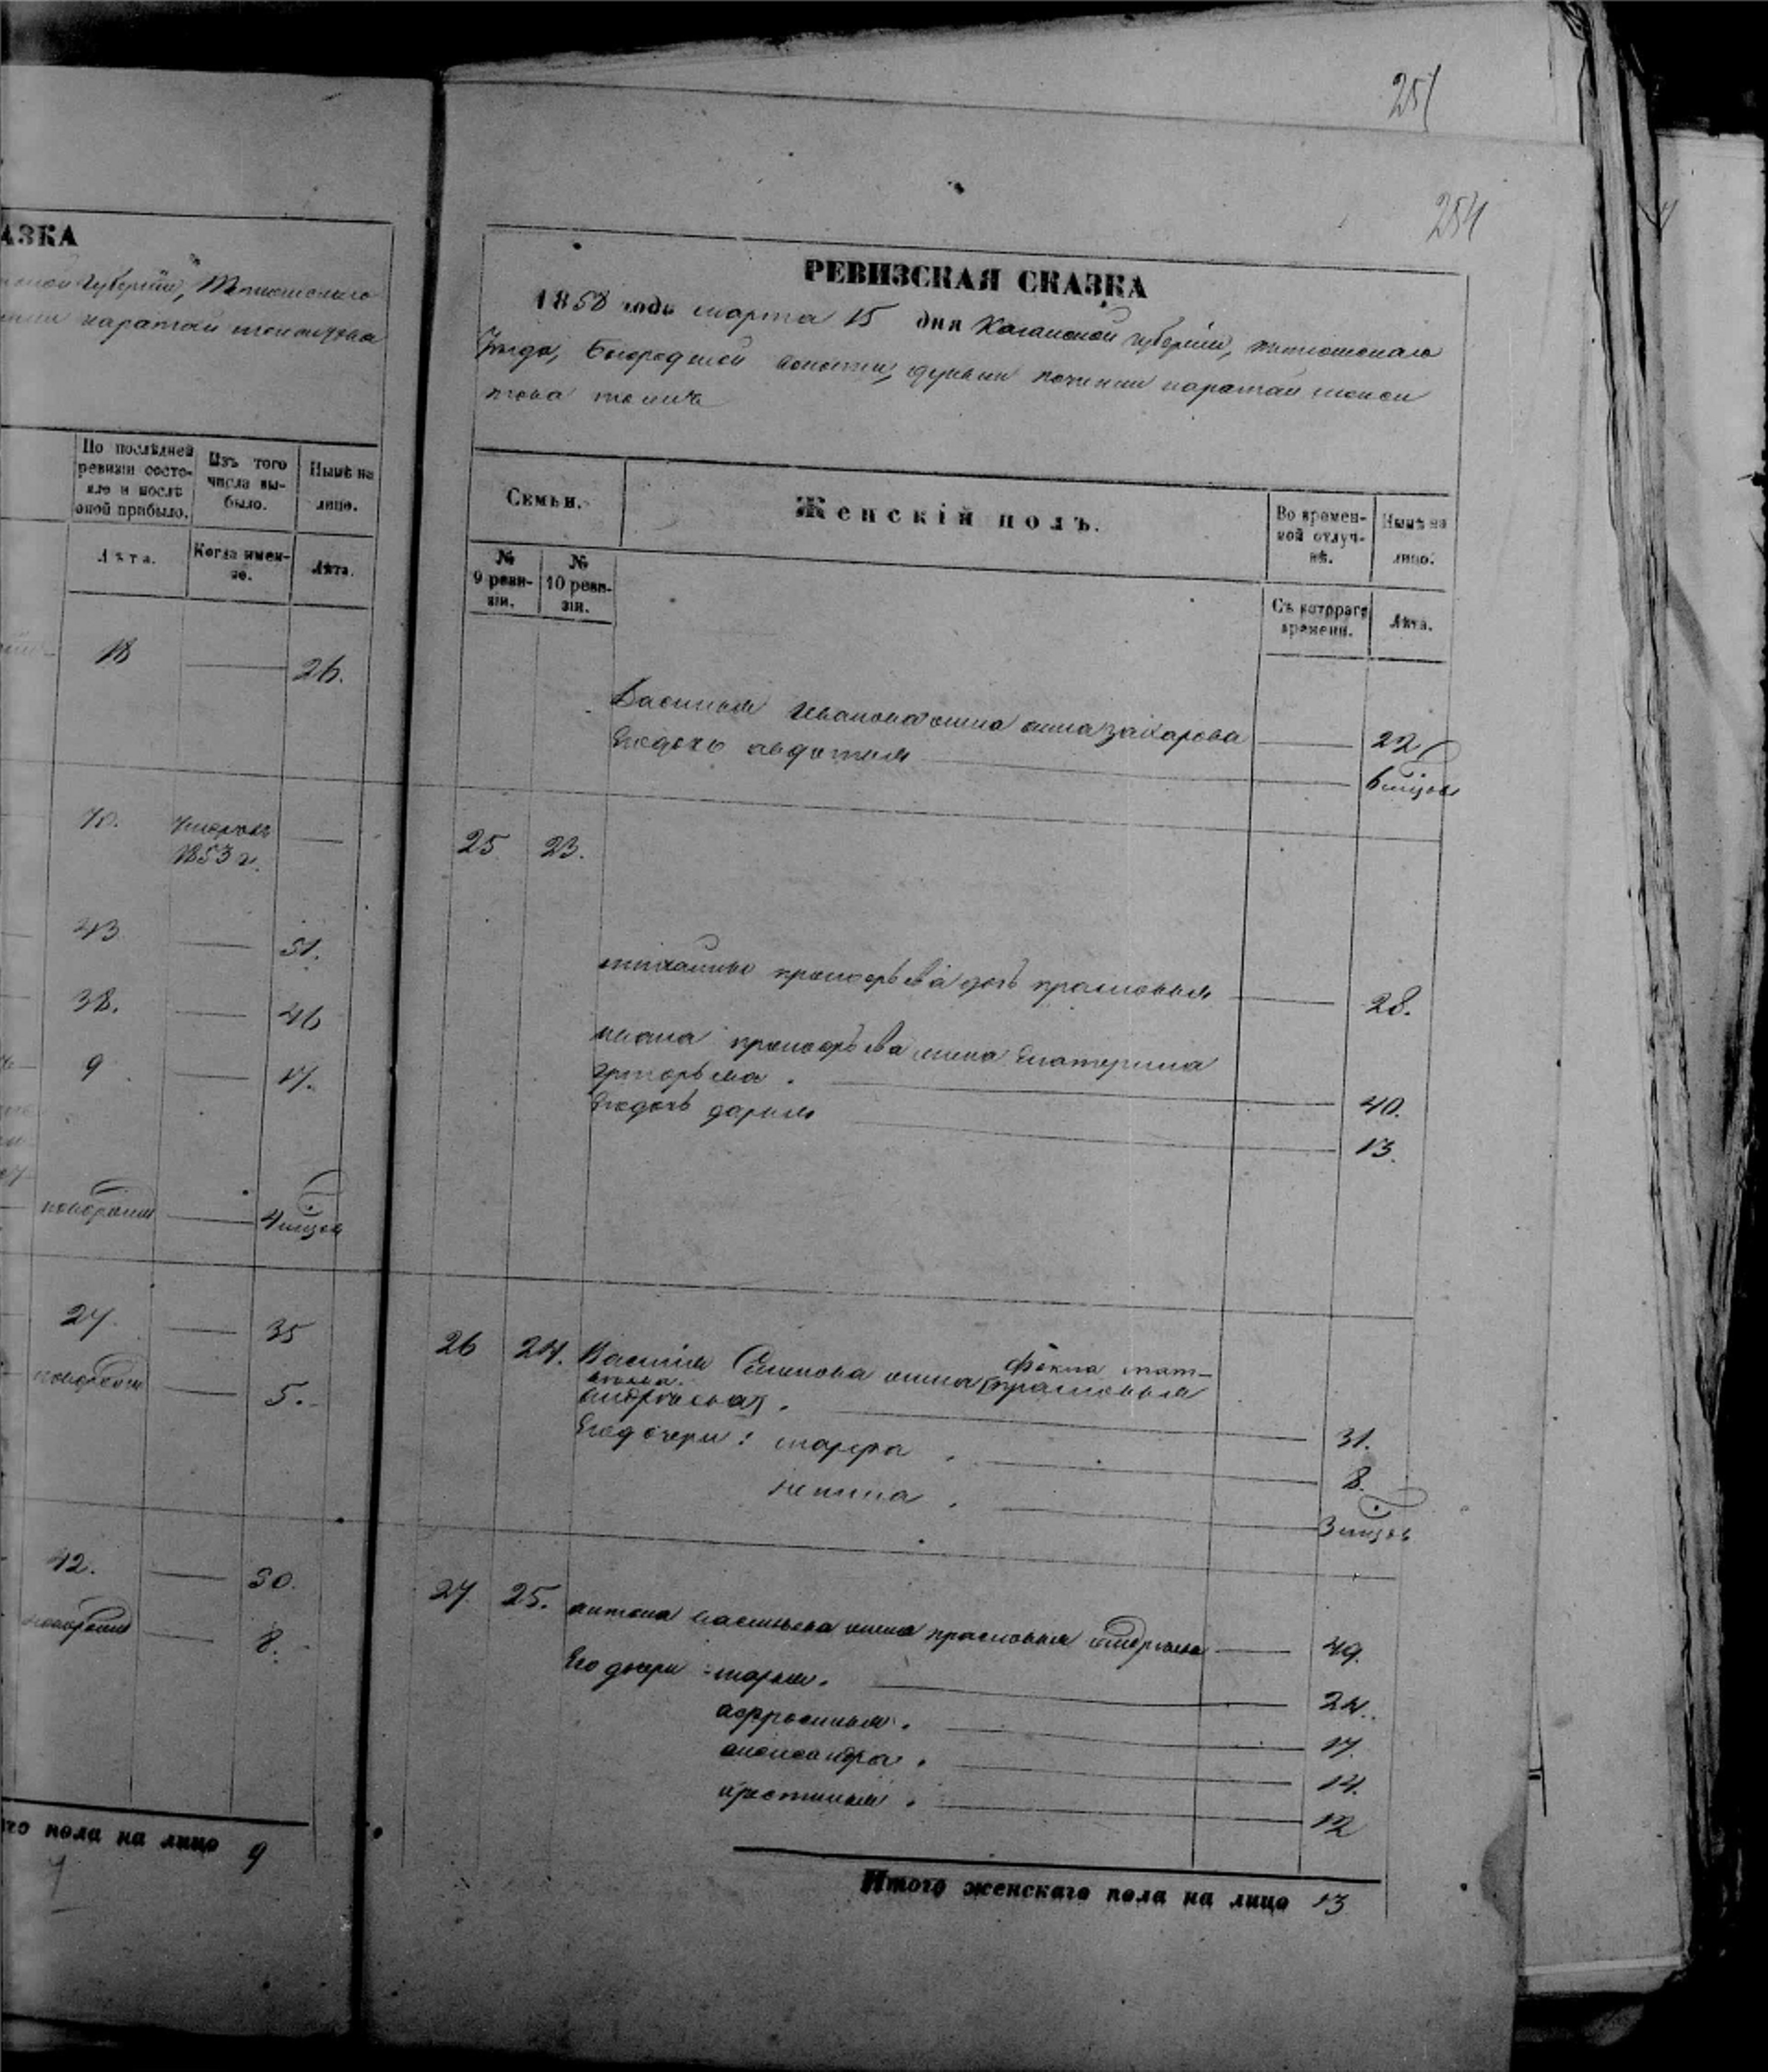 251
254
АЗКА
губернiи, Тетюшскаго
каратай
По послѣдней ревизiи состо-
яло и послѣ
оной прибыло.
Изъ того
числа вы-
было.
Нынѣ на
лицо.
Лѣта.
Когда имен-
но.
Лѣта.
18 26.
70. умеръ 1853 г.
43 51.
38. 46
9 17.
новорожден 4 мѣсяц
27. 35
новорожден 5.
42. 50.
новорожден 8.
го пола на лицо 9
7
РЕВИЗСКАЯ СКАЗКА
1858 года марта 15 дня Казанской губернiи, тетюшскаго
уѣзда, волости, деревни починки каратай
Семьи.
Женскiй полъ.
Во времен-
ной отлуч-
кѣ.
Нынѣ на
лицо.
№
9 реви-
зiи.
№
10 реви-
зiи.
Съ котораго
времени.
Лѣта.
Василья Иванова жена анна захарова 22
Его дочь авдотья 6 мѣсяцов
25 23.
михайлы прокофьева дочь прасковья 28.
ивана прокофьева жена Екатерина
григорьева. 40.
Его дочь дарья 13.
26 24. Василiя Семенова жена фекла мат-
веева. (прасковья
андреева). 31.
Его дочери: марфа. 8.
. 3 мѣсяцов
27. 25. антона васильева жена прасковья андреева 49.
Его дочери: марья. 24.
афросинья. 17.
александра. 14.
христинья. 12
Итого женскаго пола на лицо 13